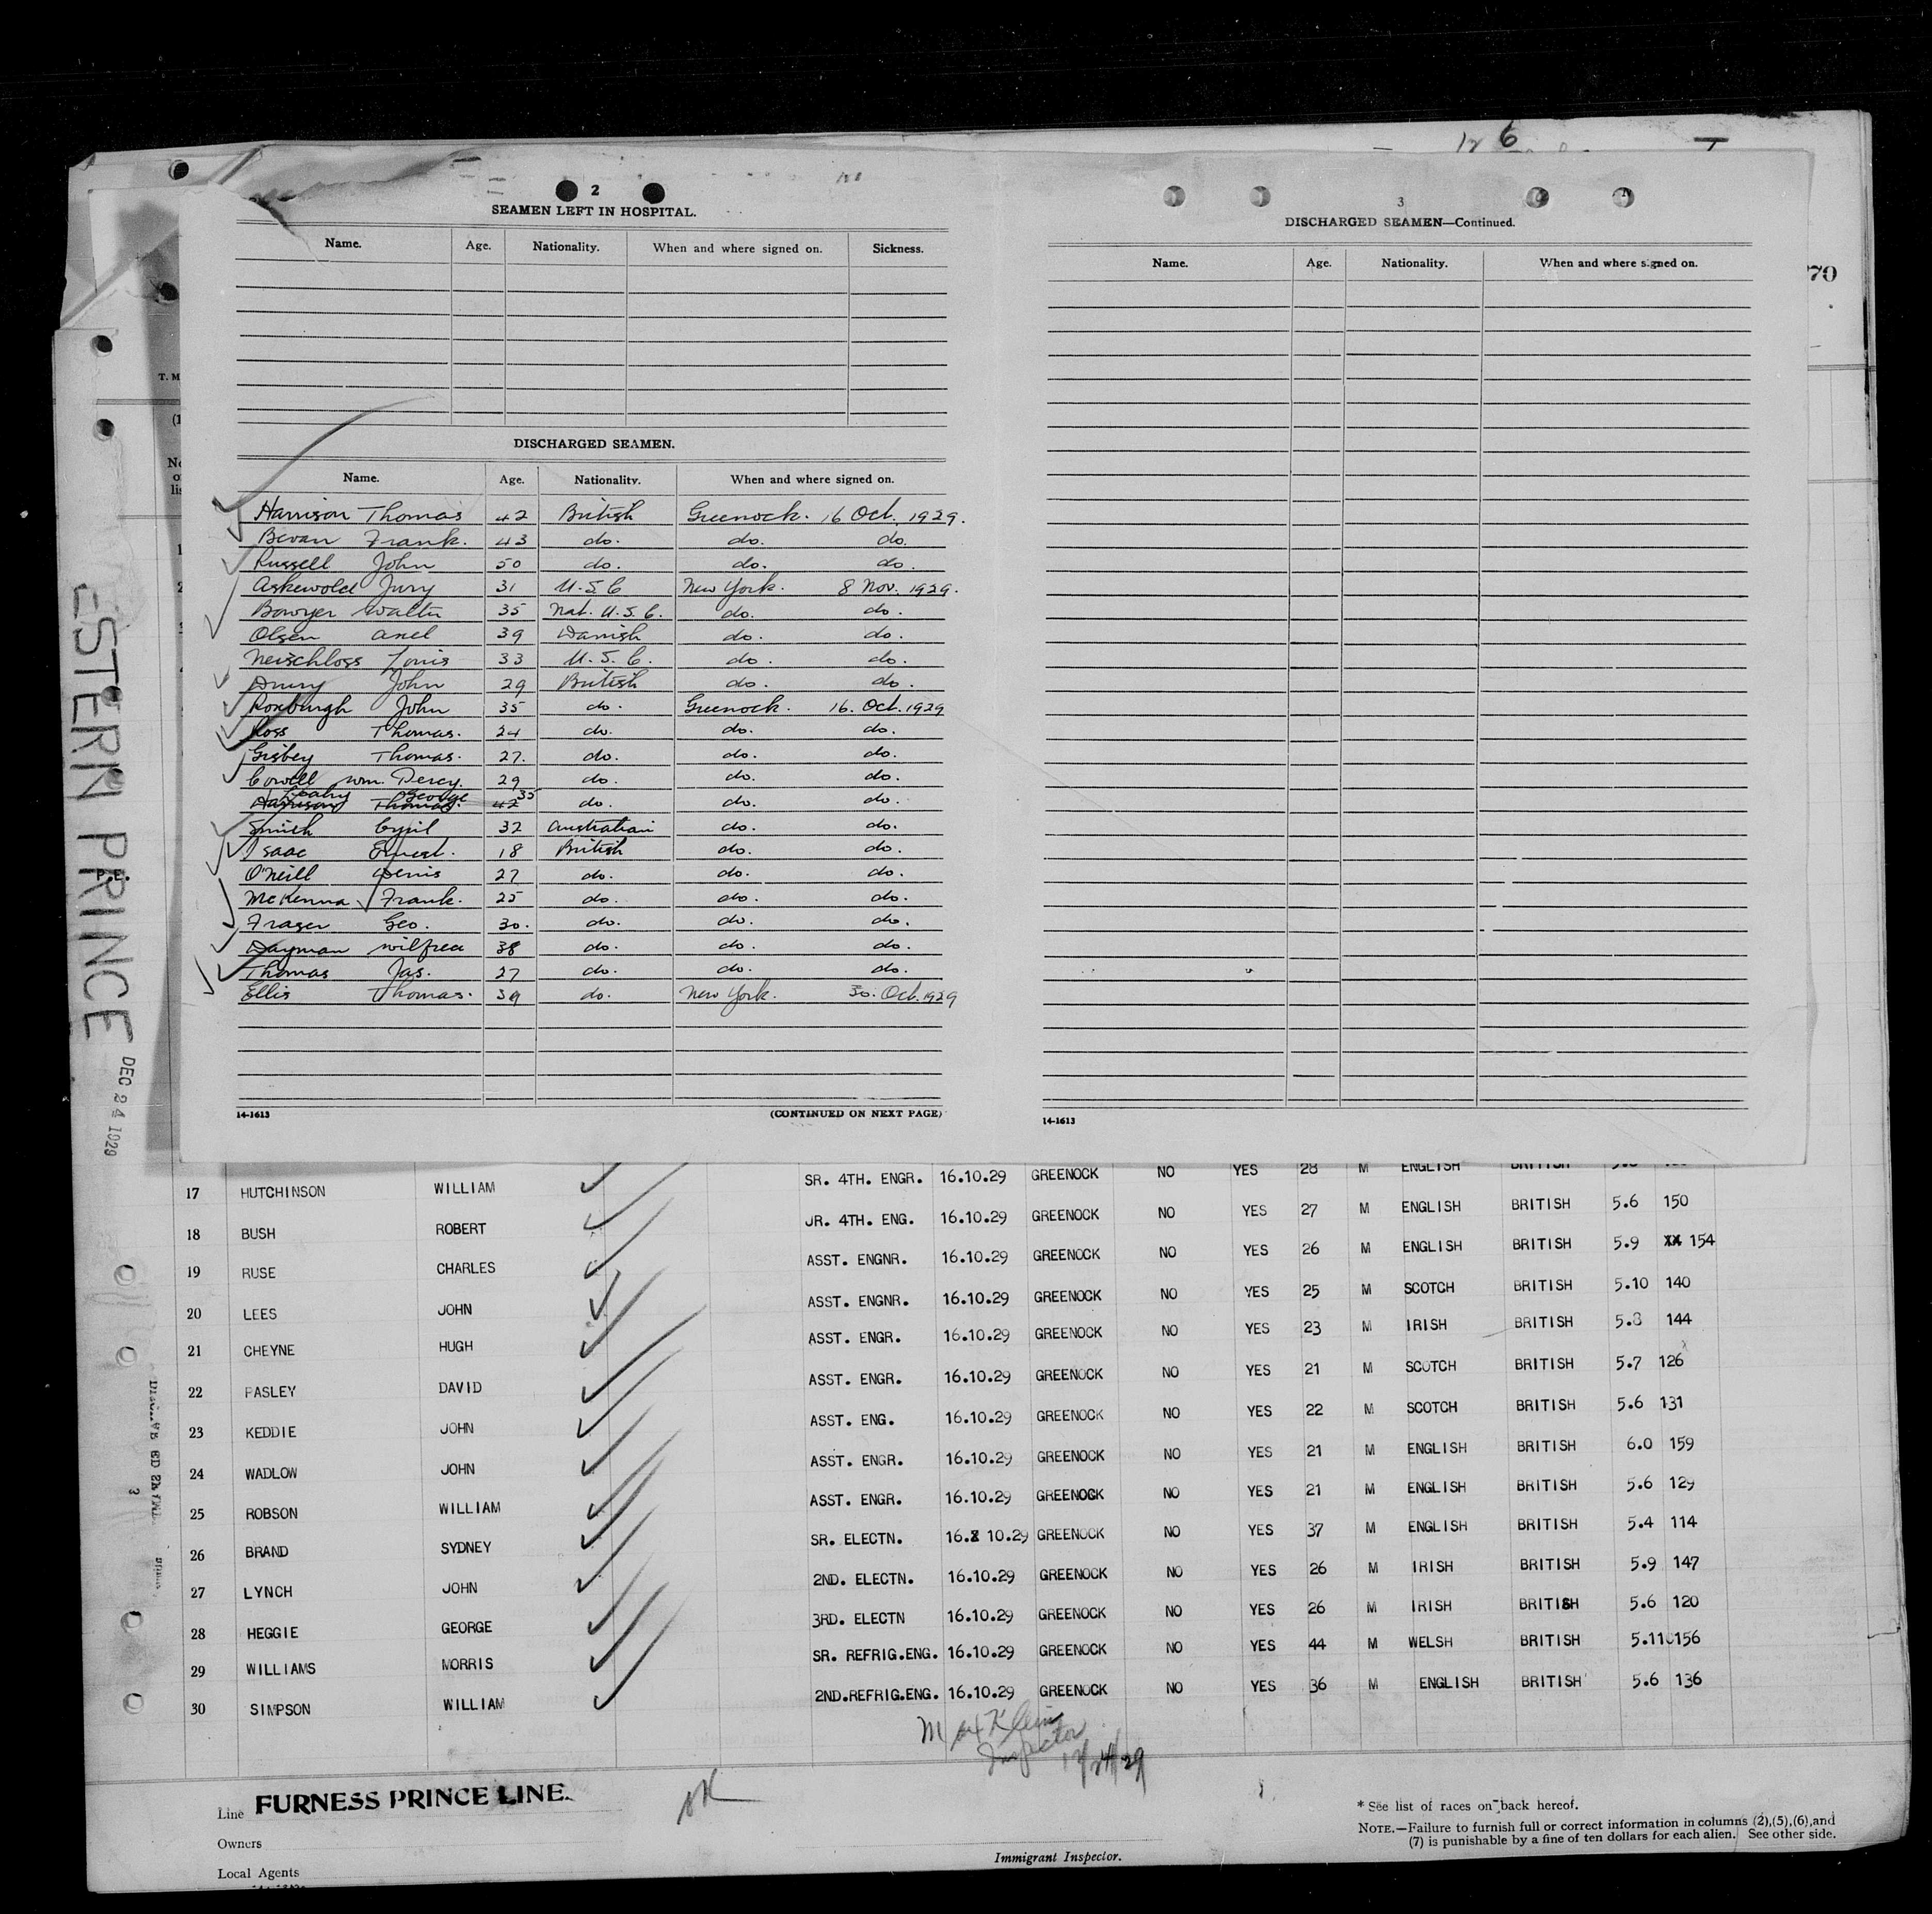 12 6
2
SEAMEN LEFT IN HOSPITAL.
Name. Age. Nationality. When and where signed on. Sickness.
DISCHARGED SEAMEN.
Name. Age. Nationality. When and where signed on.
Harrison Thomas 42 British Greenock. 16 Oct. 1929.
Bevan Frank. 43 do. do. do.
Russell John 50 do. do. do.
Askewold Jury 31 U.S.C New York. 8 Nov. 1929.
Bowyer Walter 35 Nat. U.S.C. do. do.
Olsen Axel 39 Danish do. do.
Neischloss Louis 33 U.S.C. do. do.
Drury John 29 British do. do.
Roxburgh John 35 do. Greenock. 16. Oct. 1929
Ross Thomas. 24 do. do. do.
Gisbey Thomas. 27. do. do. do.
Cowell Wm. Percy. 29 do. do. do.
George 35
Harrison Thomas. 42 do. do. do.
Smith Cyril 32 Australian do. do.
Isaac Ernest. 18 British do. do.
O'Neill Denis 27 do. do. do.
McKenna Frank. 25 do. do. do.
Fraser Geo. 30. do. do. do.
Dayman Wilfred 38 do. do. do.
Thomas Jas. 27 do. do. do.
Ellis Thomas. 39 do. New York. 30. Oct. 1929
14-1613 (CONTINUED ON NEXT PAGE)
3
DISCHARGED SEAMEN—Continued.
Name. Age. Nationality. When and where signed on.
14-1613
70
T. M
(1
No
o
lis
ESTERN PRINCE
P.E.
DEC 24 1929
17 HUTCHINSON WILLIAM SR. 4TH. ENGR. 16.10.29 GREENOCK NO YES 28 M ENGLISH BRITISH
18 BUSH ROBERT JR. 4TH. ENG. 16.10.29 GREENOCK NO YES 27 M ENGLISH BRITISH 5.6 150
19 RUSE CHARLES ASST. ENGNR. 16.10.29 GREENOCK NO YES 26 M ENGLISH BRITISH 5.9 XX 154
20 LEES JOHN ASST. ENGNR. 16.10.29 GREENOCK NO YES 25 M SCOTCH BRITISH 5.10 140
21 CHEYNE HUGH ASST. ENGR. 16.10.29 GREENOCK NO YES 23 M IRISH BRITISH 5.8 144
22 PASLEY DAVID ASST. ENGR. 16.10.29 GREENOCK NO YES 21 M SCOTCH BRITISH 5.7 126
23 KEDDIE JOHN ASST. ENG. 16.10.29 GREENOCK NO YES 22 M SCOTCH BRITISH 5.6 131
24 WADLOW JOHN ASST. ENGR. 16.10.29 GREENOCK NO YES 21 M ENGLISH BRITISH 6.0 159
25 ROBSON WILLIAM ASST. ENGR. 16.10.29 GREENOCK NO YES 21 M ENGLISH BRITISH 5.6 129
26 BRAND SYDNEY SR. ELECTN. 16. 10.29 GREENOCK NO YES 37 M ENGLISH BRITISH 5.4 114
27 LYNCH JOHN 2ND. ELECTN. 16.10.29 GREENOCK NO YES 26 M IRISH BRITISH 5.9 147
28 HEGGIE GEORGE 3RD. ELECTN 16.10.29 GREENOCK NO YES 26 M IRISH BRITISH 5.6 120
29 WILLIAMS MORRIS SR. REFRIG.ENG. 16.10.29 GREENOCK NO YES 44 M WELSH BRITISH 5.11 156
30 SIMPSON WILLIAM 2ND.REFRIG.ENG. 16.10.29 GREENOCK NO YES 36 M ENGLISH BRITISH 5.6 136
Max Klein
Inspector 12/24/29
OK
Line FURNESS PRINCE LINE.
Owners
Local Agents
Immigrant Inspector.
* See list of races on back hereof.
NOTE.—Failure to furnish full or correct information in columns (2),(5),(6),and
(7) is punishable by a fine of ten dollars for each alien. See other side.